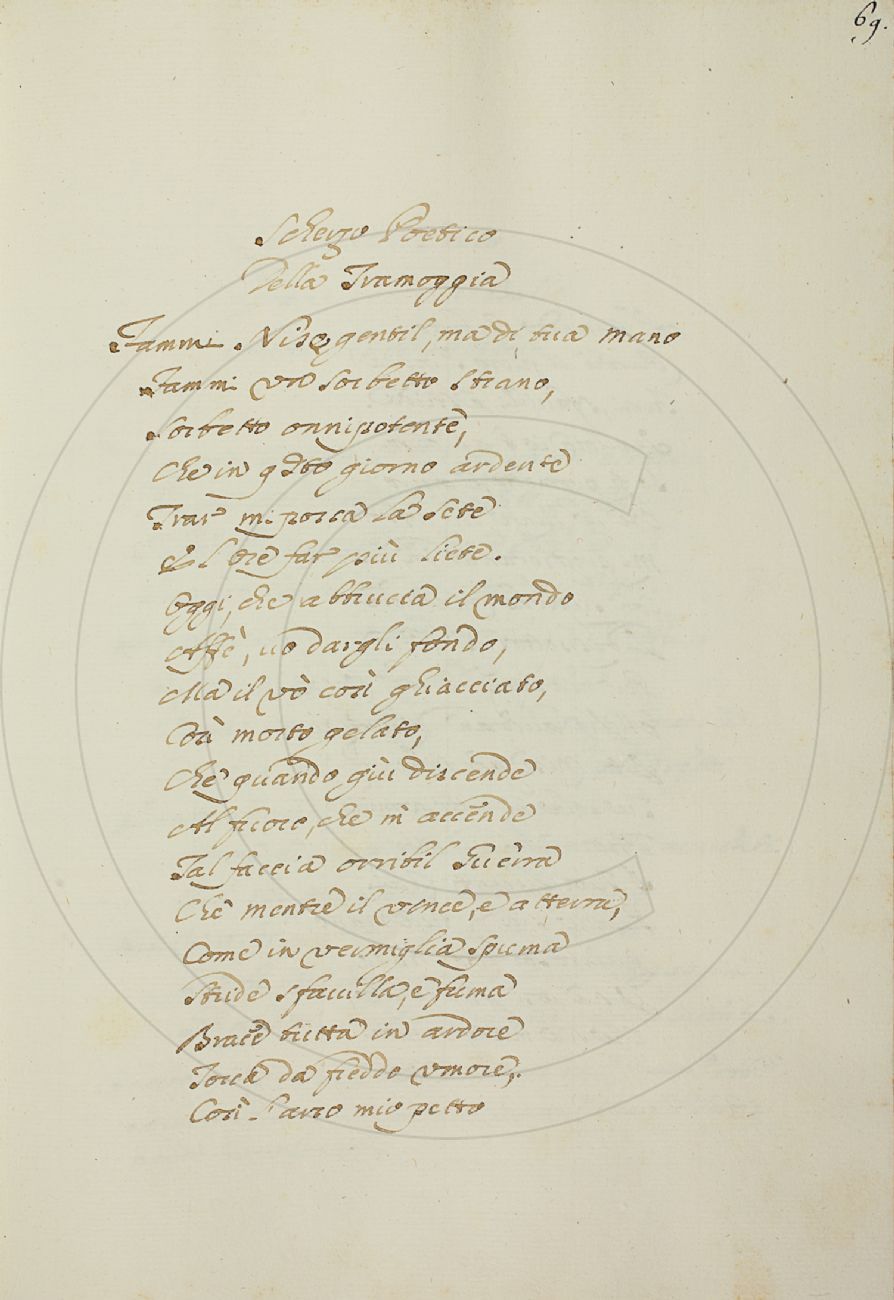 69.
Scherzo Poetico
Della Tramoggia
Fammi Niso gentil, ma di tua mano
Fammi un sorbetto strano,
Sorbetto onnipotente,
Che in qsto giorno ardente
Trar mi possa la sete
E l'ore far più liete.
Oggi, che abbrucia il mondo
Affè, uò dargli fondo,
Ma il vò così ghiacciato,
Così morto gelato,
Che quando giù discende
Al fuoco, che m' accende
Tal faccia orribil Guerra
Che mentre il vince, e atterra,
Come in vermiglia spuma
Stride sfavilla, e fuma
Brace tutta in ardore
Tocca da freddo umore,
Così l'arso mio petto